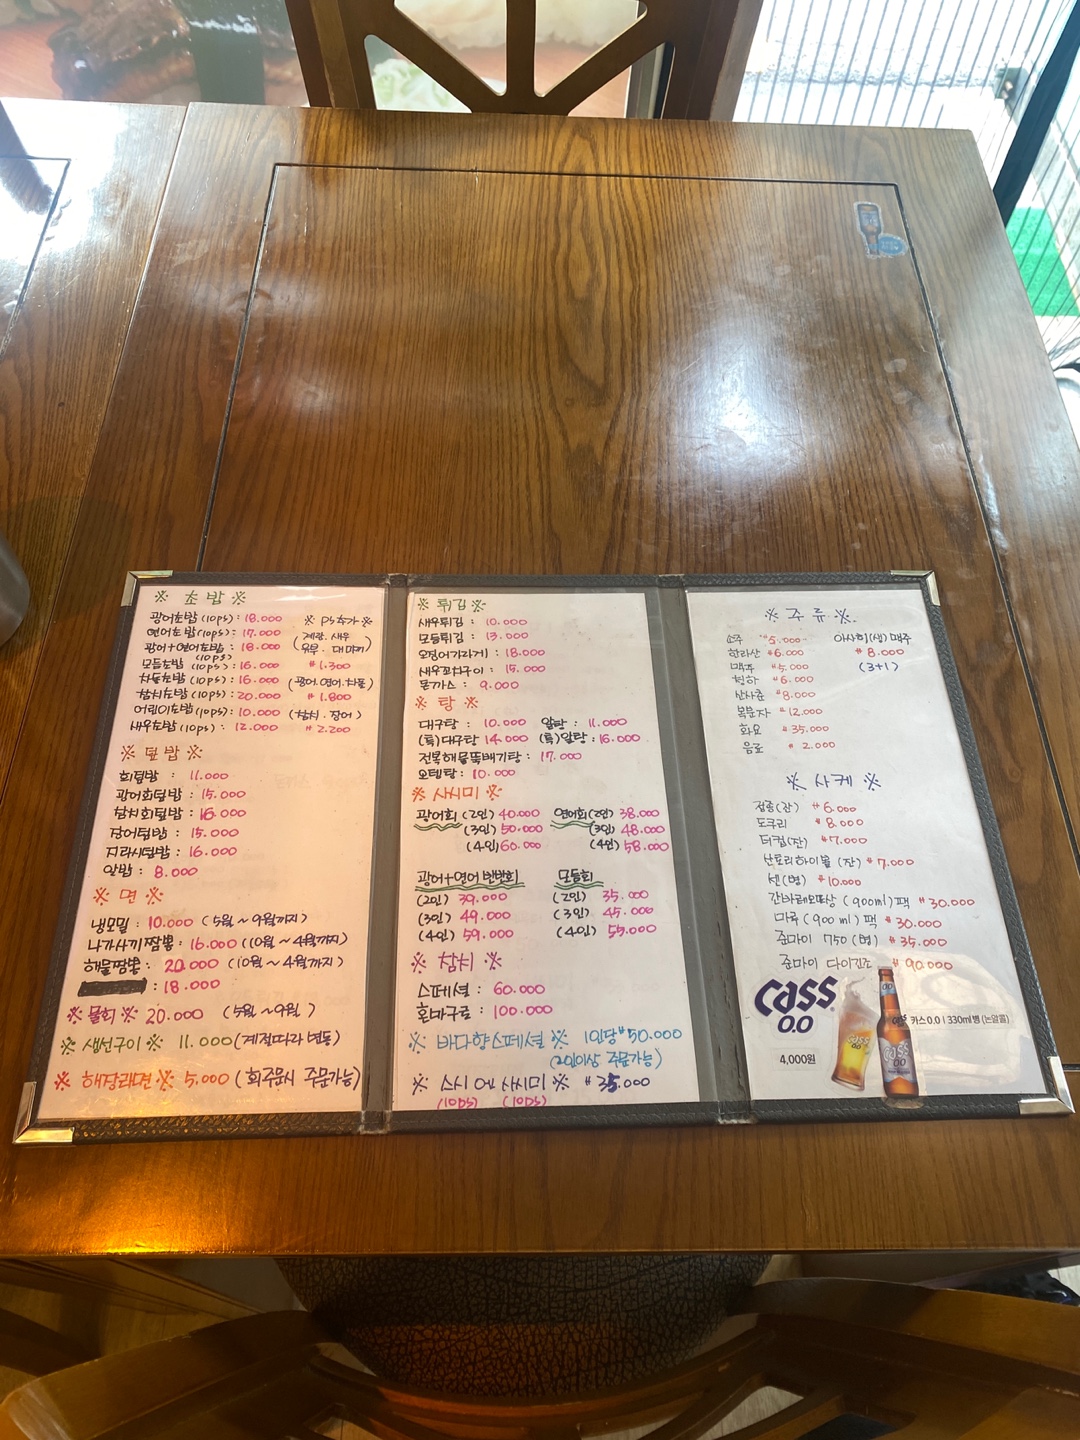 ※ 초밥 ※
광어초밥(10ps) : 18.000
연어초밥(10ps) : 17.000
광어+연어초밥 : 18.000
(10ps)
모듬초밥(10ps) : 16.000
차돌초밥(10ps) : 16.000
참치초밥(10ps) : 20.000
어린이초밥(10ps) : 10.000
새우초밥(10ps) : 12.000
※ ps추가 ※
(계란. 새우
유부.
₩1.300
(광어.연어.차돌)
₩1.800
(참치. 장어)
₩2.200
※ 덮밥 ※
회덮밥 : 11.000
광어회덮밥 : 15.000
참치회덮밥 : 16.000
장어덮밥 : 15.000
지라시덮밥 : 16.000
알밥 : 8.000
※ 면 ※
냉모밀 : 10.000 (5월~9월까지)
나가사끼짬뽕 : 16.000 (10월~4월까지)
해물짬뽕 : 20.000 (10월~4월까지)
: 18.000
※ 물회 ※ 20.000 (5월~9월)
※ 생선구이 ※ 11.000 (계절따라 변동)
※ 해장라면 ※ 5.000 (회주문시 주문가능)
※ 튀김 ※
새우튀김 : 10.000
모듬튀김 : 13.000
오징어가라게 : 18.000
새우꼬치구이 : 15.000
돈까스 : 9.000
※ 탕 ※
대구탕 : 10.000 알탕 : 11.000
(특)대구탕 14.000 (특)알탕 : 16.000
전복해물뚝배기탕 : 17.000
오뎅탕 : 10.000
※ 사시미 ※
광어회 (2인) 40.000
(3인) 50.000
(4인) 60.000
연어회(2인) 38.000
(3인) 48.000
(4인) 58.000
광어+연어 반반회
(2인) 39.000
(3인) 49.000
(4인) 59.000
모듬회
(2인) 35.000
(3인) 45.000
(4인) 55.000
※ 참치 ※
스페셜 : 60.000
혼마구로 : 100.000
※ 바다향스페셜 ※ 1인당 ₩50.000
(2인이상 주문가능)
※ 스시 앤 사시미 ※ ₩35.000
(10ps) (10ps)
※ 주류 ※
소주 ₩5.000
한라산 ₩6.000
맥주 ₩5.000
청하 ₩6.000
산사춘 ₩8.000
복분자 ₩12.000
화요 ₩35.000
음료 ₩2.000
아사히(생)맥주
₩8.000
(3+1)
※ 사케 ※
정종(잔) ₩6.000
도쿠리 ₩8.000
더컵(잔) ₩7.000
산토리하이볼 (잔) ₩7.000
센(병) ₩10.000
간바레오또상 (900ml)팩 ₩30.000
마루 (900ml) 팩 ₩30.000
준마이 750 (병) ₩35.000
준마이 다이긴조 ₩90.000
Cass
0.0
카스 0.0 | 330ml 병 (논알콜)
4,000원